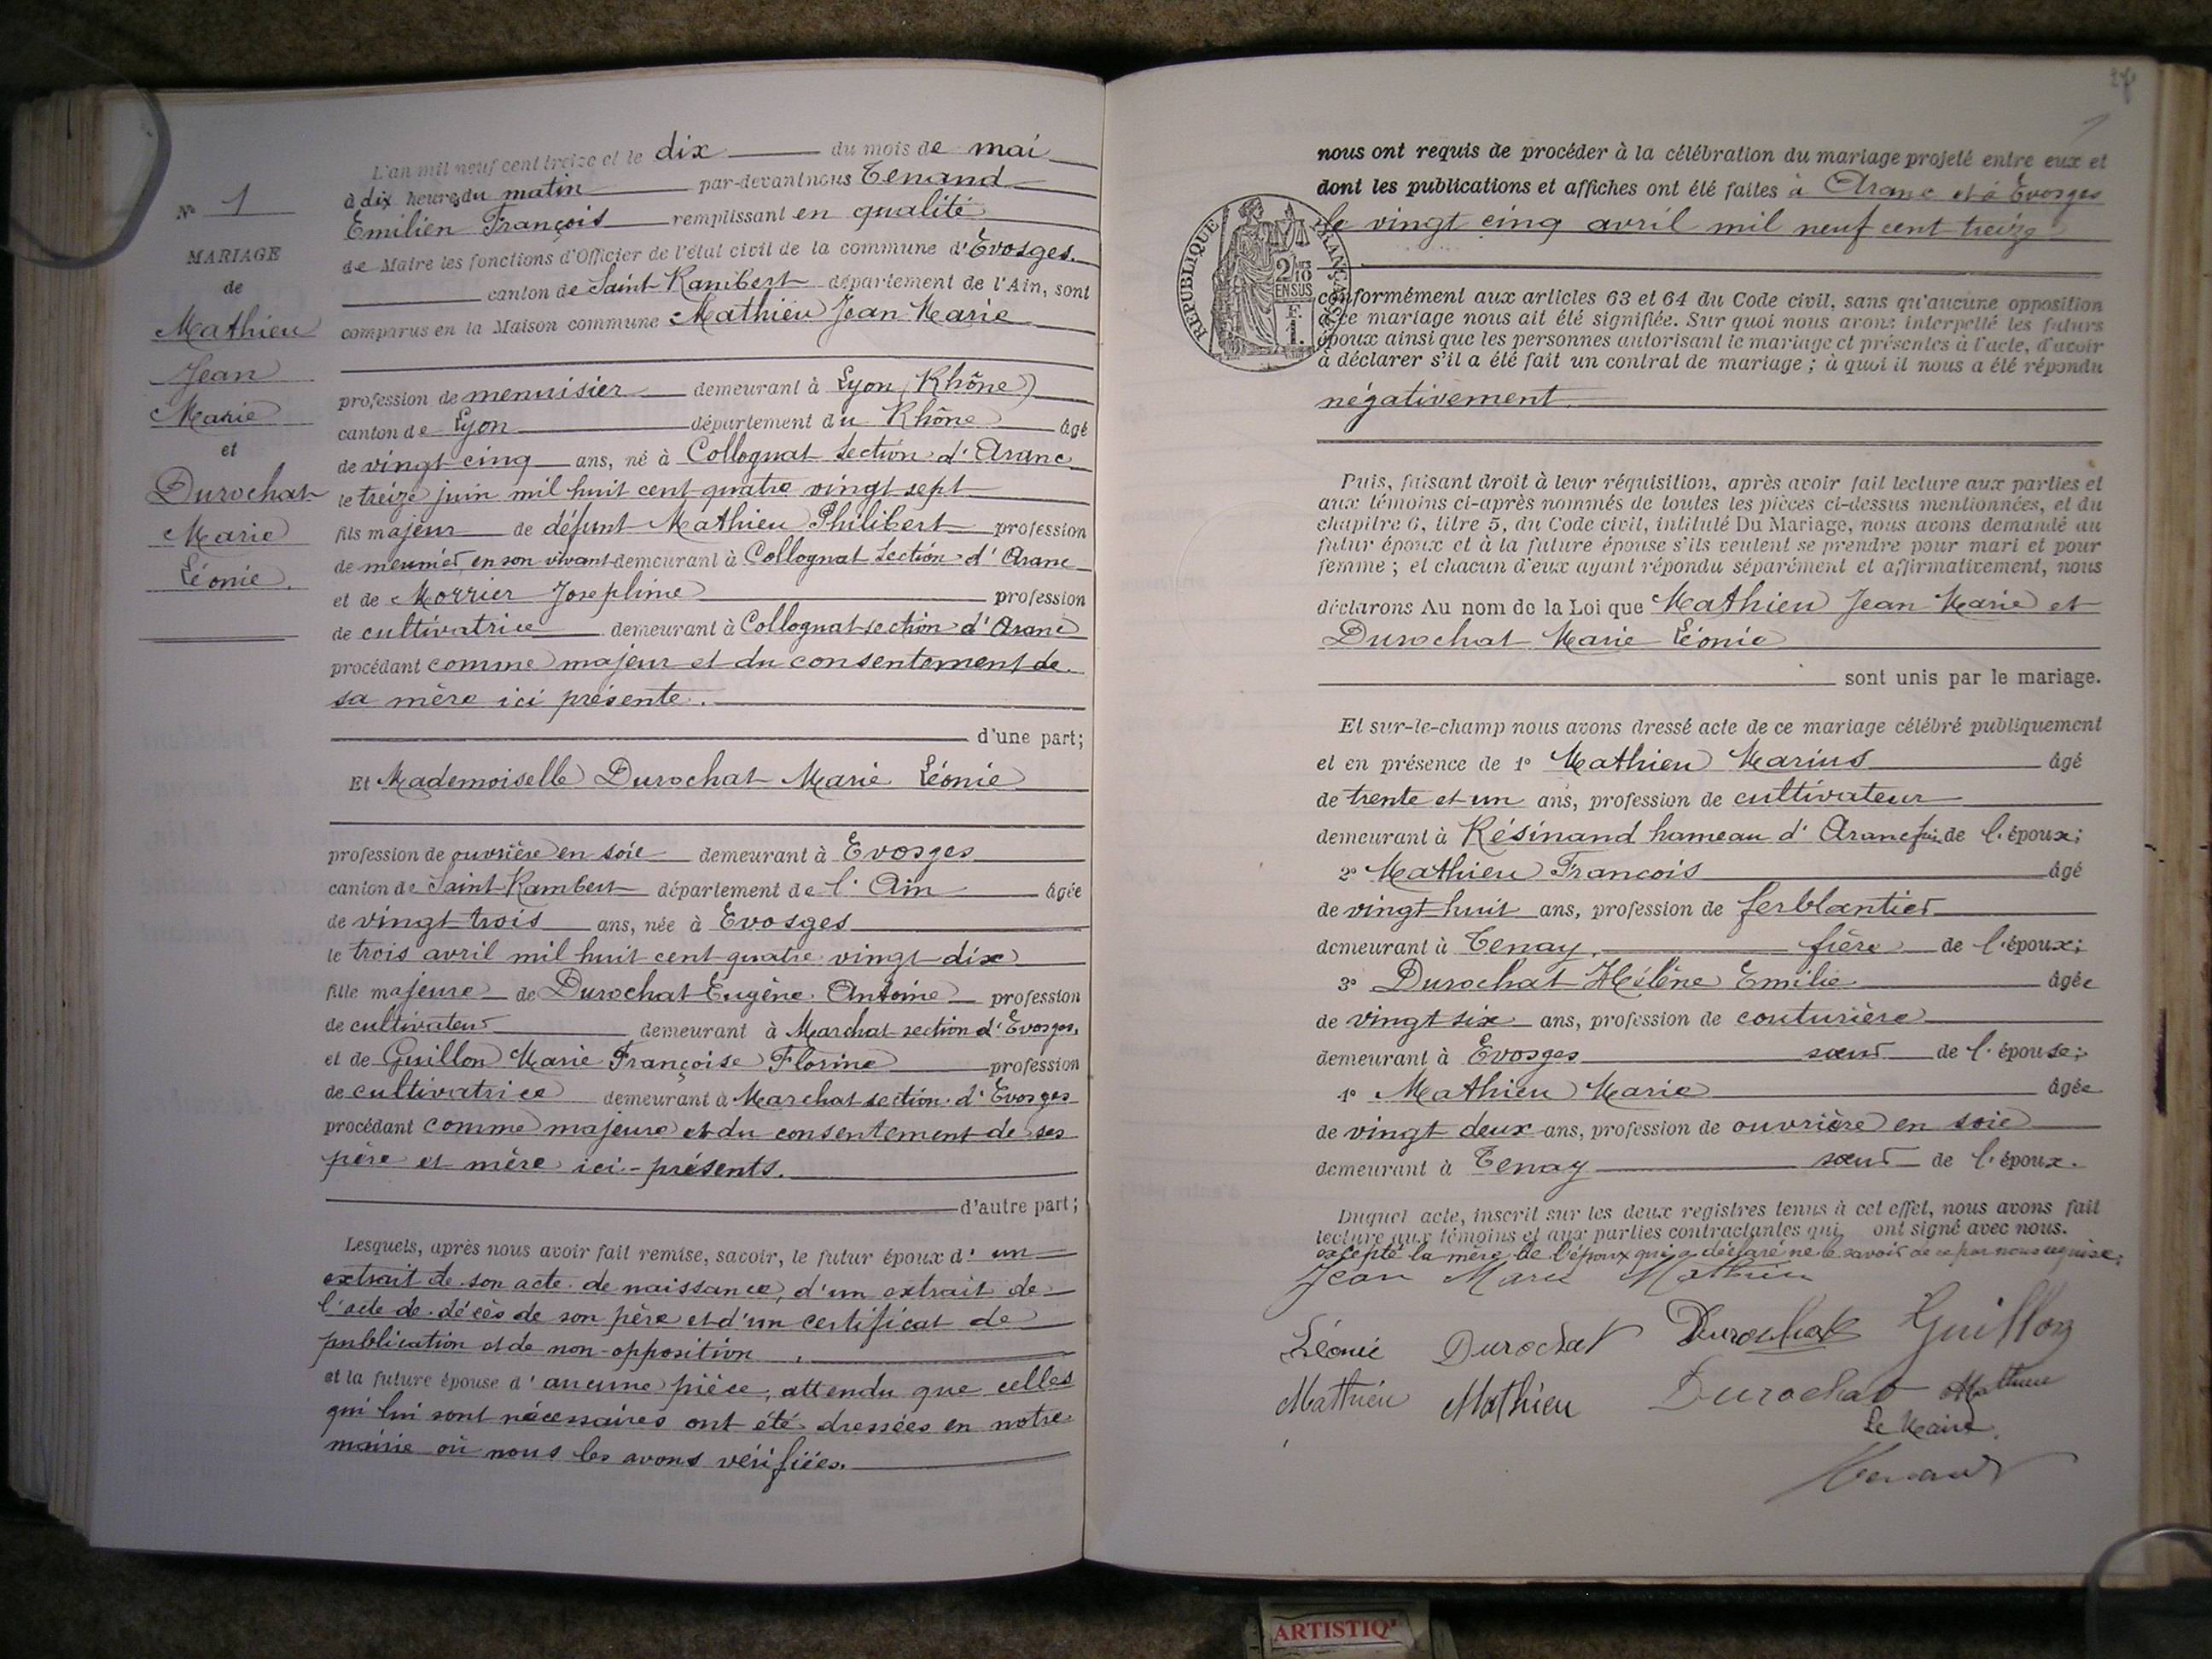 N° 1
MARIAGE
de
Mathieu
Jean
Marie
et
Durochat
Marie
Léonie.
L'an mil neuf cent treize et le dix du mois de mai
à dix heures du matin par-devant nous Tenand
Emilien François remplissant en qualité
de Maire les fonctions d'Officier de l'état civil de la commune d'Evosges.
canton de Saint-Rambert département de l'Ain, sont
comparus en la Maison commune Mathieu Jean Marie
profession de menuisier demeurant à Lyon (Rhône)
canton de Lyon département du Rhône âgé
de vingt cinq ans, né à Collognat section d'Aranc
le treize juin mil huit cent quatre vingt sept
fils majeur de défunt Mathieu Philibert profession
de meunier, en son vivant demeurant à Collognat section d'Aranc
et de Morrier Josephine profession
de cultivatrice demeurant à Collognat section d'Aranc
procédant comme majeur et du consentement de
sa mère ici présente.
d'une part;
Et Mademoiselle Durochat Marie Léonie
profession de ouvrière en soie demeurant à Evosges
canton de Saint-Rambert département de l'Ain âgée
de vingt trois ans, née à Evosges
le trois avril mil huit cent quatre vingt dix
fille majeure de Durochat Eugène Antoine profession
de cultivateur demeurant à Marchat section d'Evosges,
et de Guillon Marie Françoise Florine profession
de cultivatrice demeurant à Marchat section d'Evosges
procédant comme majeure et du consentement de ses
père et mère ici-présents.
d'autre part;
Lesquels, après nous avoir fait remise, savoir, le futur époux d'un
extrait de son acte de naissance, d'un extrait de
l'acte de décès de son père et d'un certificat de
publication et de non-opposition.
et la future épouse d'aucune pièce, attendu que celles
qui lui sont nécessaires ont été dressées en notre
mairie où nous les avons vérifiées.
nous ont requis de procéder à la célébration du mariage projeté entre eux et
dont les publications et affiches ont été faites à Aranc et à Evosges
le vingt cinq avril mil neuf cent treize
RÉPUBLIQUE FRANÇAISE
2/10 EN SUS
1 F.
conformément aux articles 63 et 64 du Code civil, sans qu'aucune opposition
à ce mariage nous ait été signifiée. Sur quoi nous avons interpellé les futurs
époux ainsi que les personnes autorisant le mariage et présentes à l'acte, d'avoir
à déclarer s'il a été fait un contrat de mariage; à quoi il nous a été répondu
négativement.
Puis, faisant droit à leur réquisition, après avoir fait lecture aux parties et
aux témoins ci-après nommés de toutes les pièces ci-dessus mentionnées, et du
chapitre 6, titre 5, du Code civil, intitulé Du Mariage, nous avons demandé au
futur époux et à la future épouse s'ils veulent se prendre pour mari et pour
femme; et chacun d'eux ayant répondu séparément et affirmativement, nous
déclarons Au nom de la Loi que Mathieu Jean Marie et
Durochat Marie Léonie
sont unis par le mariage.
Et sur-le-champ nous avons dressé acte de ce mariage célébré publiquement
et en présence de 1° Mathieu Marius âgé
de trente et un ans, profession de cultivateur
demeurant à Résinand hameau d'Aranc de l'époux;
2° Mathieu François âgé
de vingt huit ans, profession de ferblantier
demeurant à Tenay, frère de l'époux;
3° Durochat Hélène Emilie âgée
de vingt six ans, profession de couturière
demeurant à Evosges soeur de l'épouse;
4° Mathieu Marie âgée
de vingt deux ans, profession de ouvrière en soie
demeurant à Tenay soeur de l'époux.
Duquel acte, inscrit sur les deux registres tenus à cet effet, nous avons fait
lecture aux témoins et aux parties contractantes qui ont signé avec nous.
excepté la mère de l'époux qui a déclaré ne le savoir de ce par nous requise.
Jean Marie Mathieu
Léonie Durochat Durochat Guillon
Mathieu Mathieu Durochat Mathieu
Le Maire,
Tenand
ARTISTIQ'